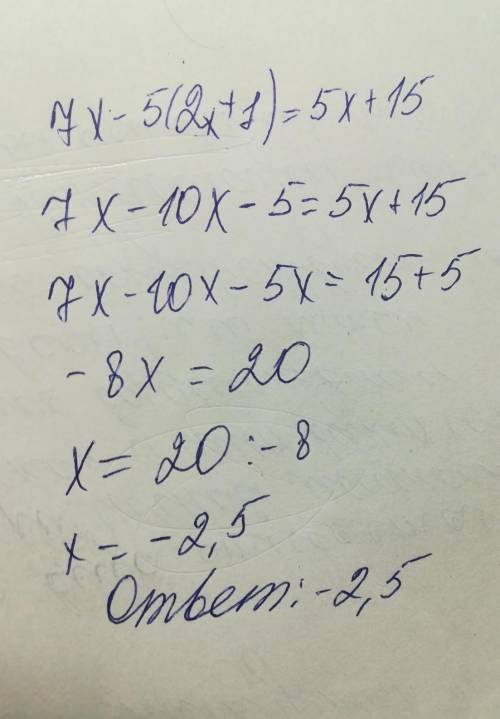 7x - 5(2x+1) = 5x + 15
7x - 10x - 5 = 5x + 15
7x - 10x - 5x = 15 + 5
- 8x = 20
x = 20 : - 8
x = - 2,5
Ответ: - 2,5